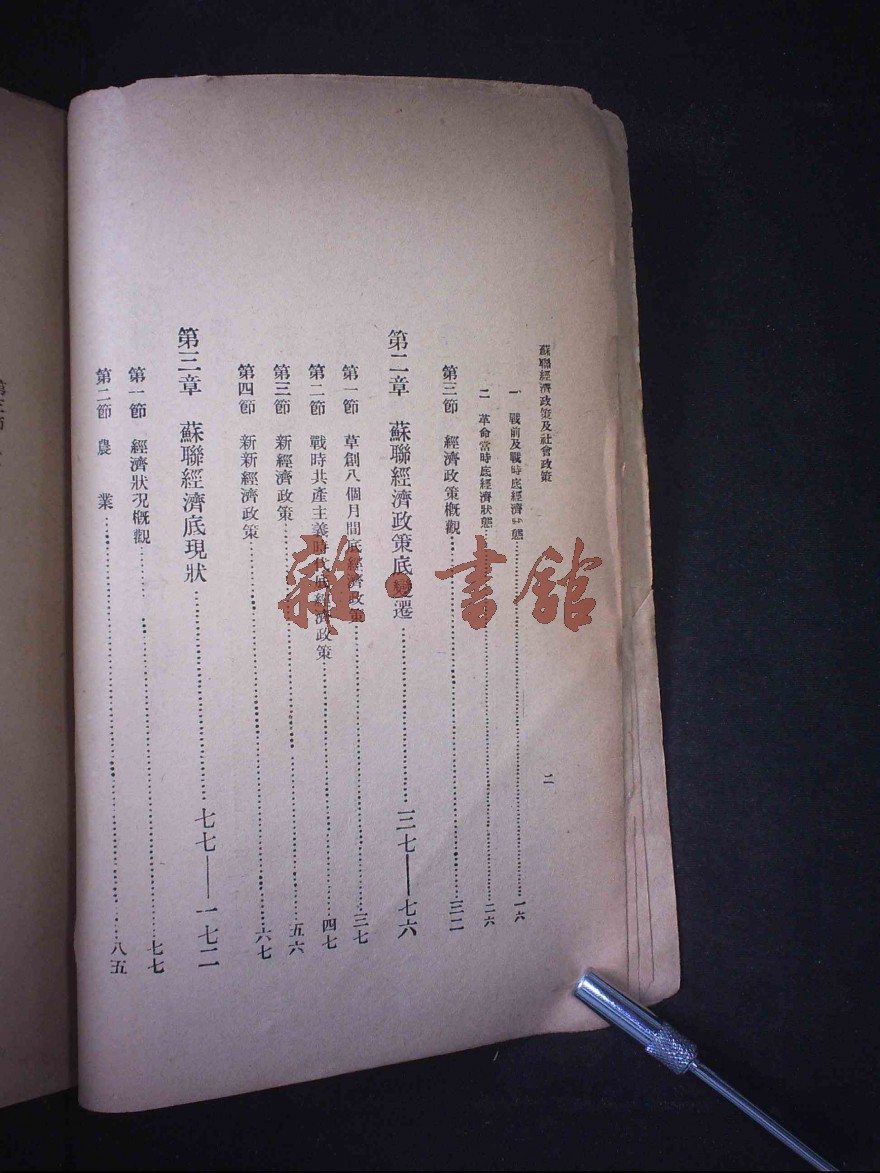 蘇聯經濟政策及社會政策 二
一 戰前及戰時底經濟狀態……一六
二 革命當時底經濟狀態……二六
第三節 經濟政策概觀……三二
第二章 蘇聯經濟政策底變遷……三七——七六
第一節 草創八個月間底經濟政策……三七
第二節 戰時共產主義時代底經濟政策……四七
第三節 新經濟政策……五六
第四節 新新經濟政策……六七
第三章 蘇聯經濟底現狀……七七——一七二
第一節 經濟狀況概觀……七七
第二節 農業……八五
雜·書館